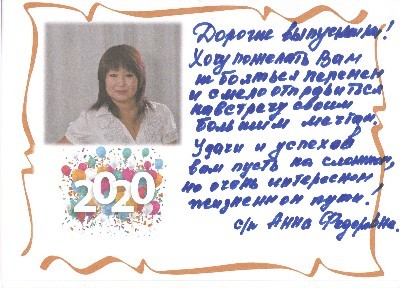 Дорогие выпускники!
Хочу пожелать Вам
не бояться перемен
и смело отправиться
навстречу своим
большим мечтам.
Удачи и успехов
вам пусть на сложном,
но очень интересном
жизненном пути!
с/п Анна Федоровна.
2020